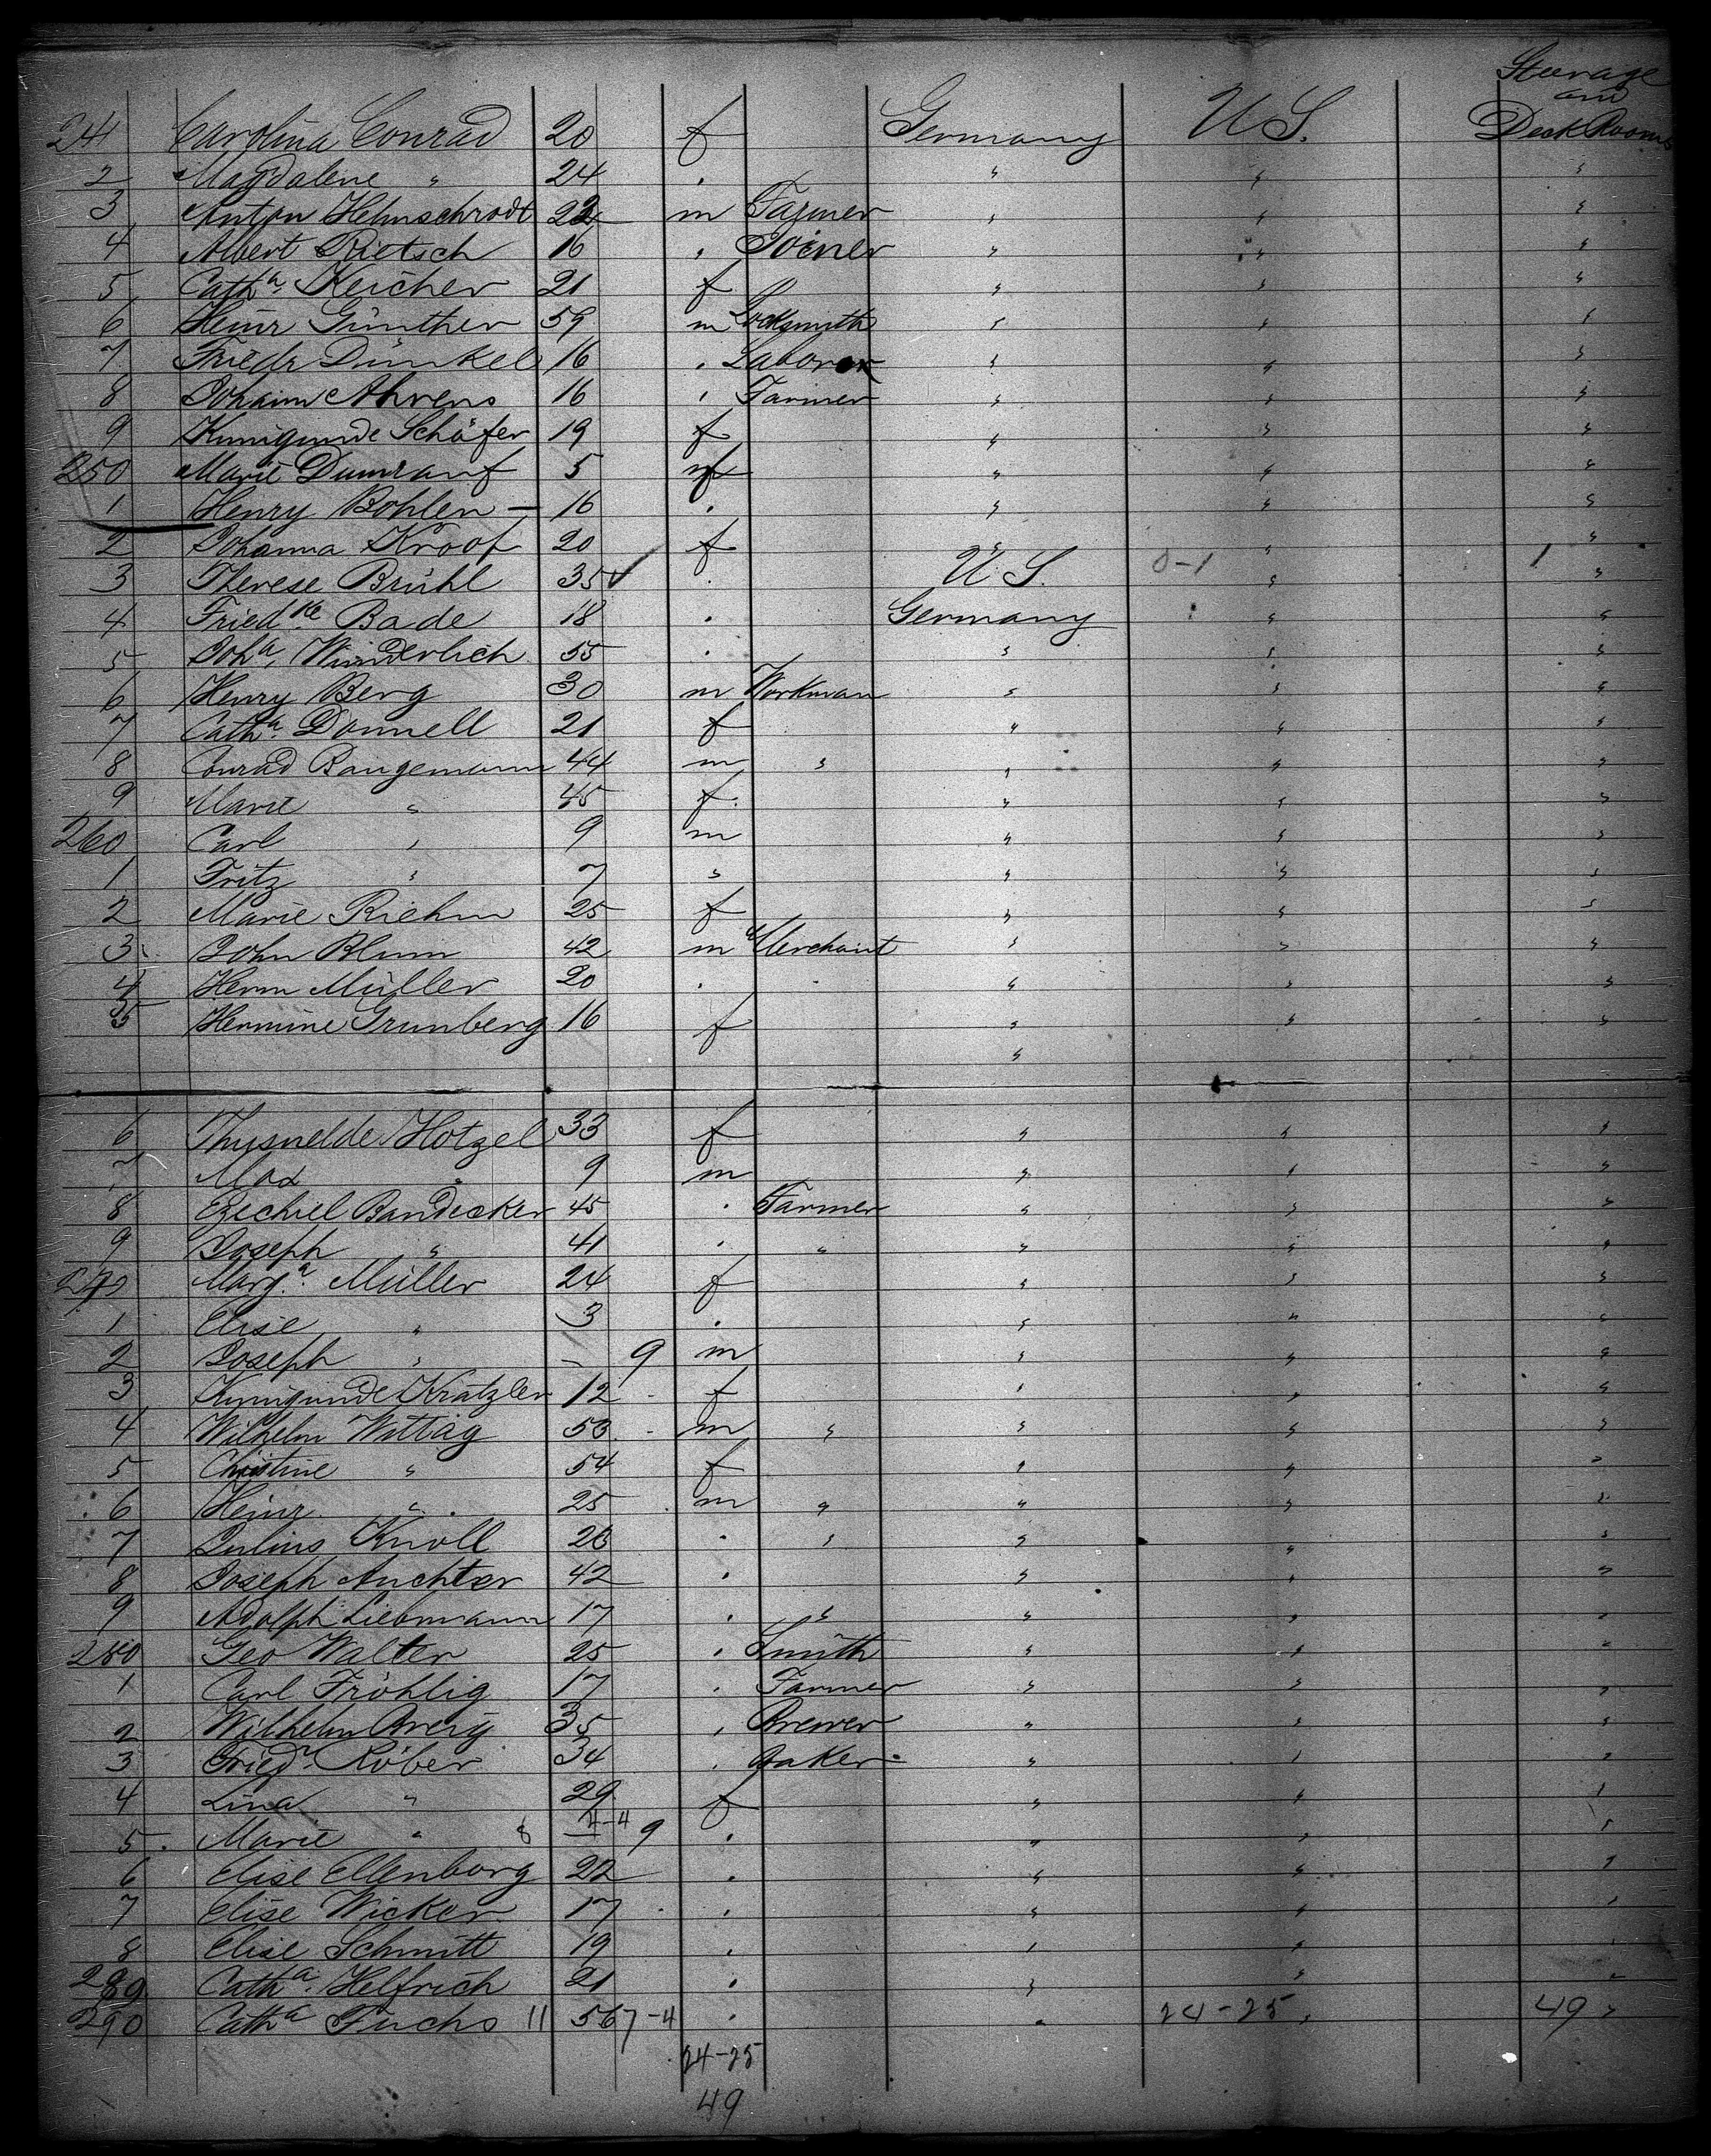 Steerage
and
24 Carolina Conrad 20 f Germany U S. Deck Rooms
2 Magdalene " 24 " " " "
3 Anton Helmschrodt 22 m Farmer " " "
4 Albert Rietsch 16 " Joiner " " "
5 Cath.a Keicher 21 f " " "
6 Heinr Günther 59 m Locksmith " " "
7 Friedr Dünkel 16 " Laborer " " "
8 Johann Ahrens 16 " Farmer " " "
9 Kunigunde Schäfer 19 f " " "
250 Marie Dumrauf 5 f " " "
1 Henry Bohlen — 16 " " " "
2 Johanna Kroof 20 f " " "
3 Therese Brühl 35 ✓ " U. S. 0-1 " 1 "
4 Fried.ke Bade 18 " Germany " "
5 Joh.a Wunderlich 55 " " " "
6 Henry Berg 30 m Workman " " "
7 Cath.a Donnell 21 f " " "
8 Conrad Bangemann 44 m " " " "
9 Marie " 45 f " " "
260 Carl " 9 m " " "
1 Fritz " 7 " " " "
2 Marie Riehm 25 f " " "
3 John Blum 42 m Merchant " " "
4 Herm Müller 20 " " " " "
5 Hermine Grünberg 16 f " " "
"
6 Thusnelde Hotzel 33 f " " "
7 Max " 9 m " " "
8 Ezechiel Bandecker 45 " Farmer " " "
9 Joseph " 41 " " " " "
270 Marg.a Müller 24 f " " "
1 Elise " 3 " " " "
2 Joseph " — 9 m " " "
3 Kunigunde Kratzler 12 f " " "
4 Wilhelm Wittag 53 m " " " "
5 Christine " 54 f " " "
6 Heinr. " 25 m " " " "
7 Julius Knoll 26 " " " " "
8 Joseph Auchter 42 " " " "
9 Adolph Liebmann 17 " " " " "
280 Geo Walter 25 " Smith " " "
1 Carl Fröhlig 17 " Farmer " " "
2 Wilhelm 35 " Brewer " " "
3 Fried.r Röber 34 " Baker " " "
4 Lina " 29 f " " "
5 Marie " 8 4-4 9 " " " "
6 Elise Ellenberg 22 " " " "
7 Elise Wicker 17 " " " "
8 Elise Schmitt 19 " " " "
289 Cath.a Helfrich 21 " " " "
290 Cath.a Fuchs 11 56 7-4 " " 24-25 " 49 "
24-25
49